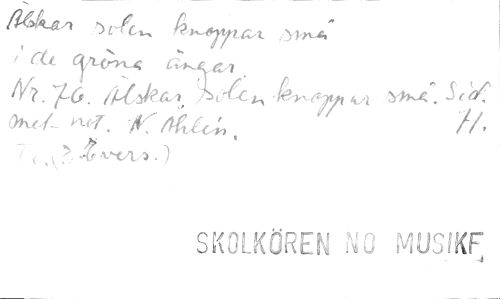 Älskar solen knoppar små
i de gröna ängar
Nr. 76. Älskar solen knoppar små. Sid.
met- not. N. Ahlén. 71.
(2 vers.)
SKOLKÖREN NO MUSIKF